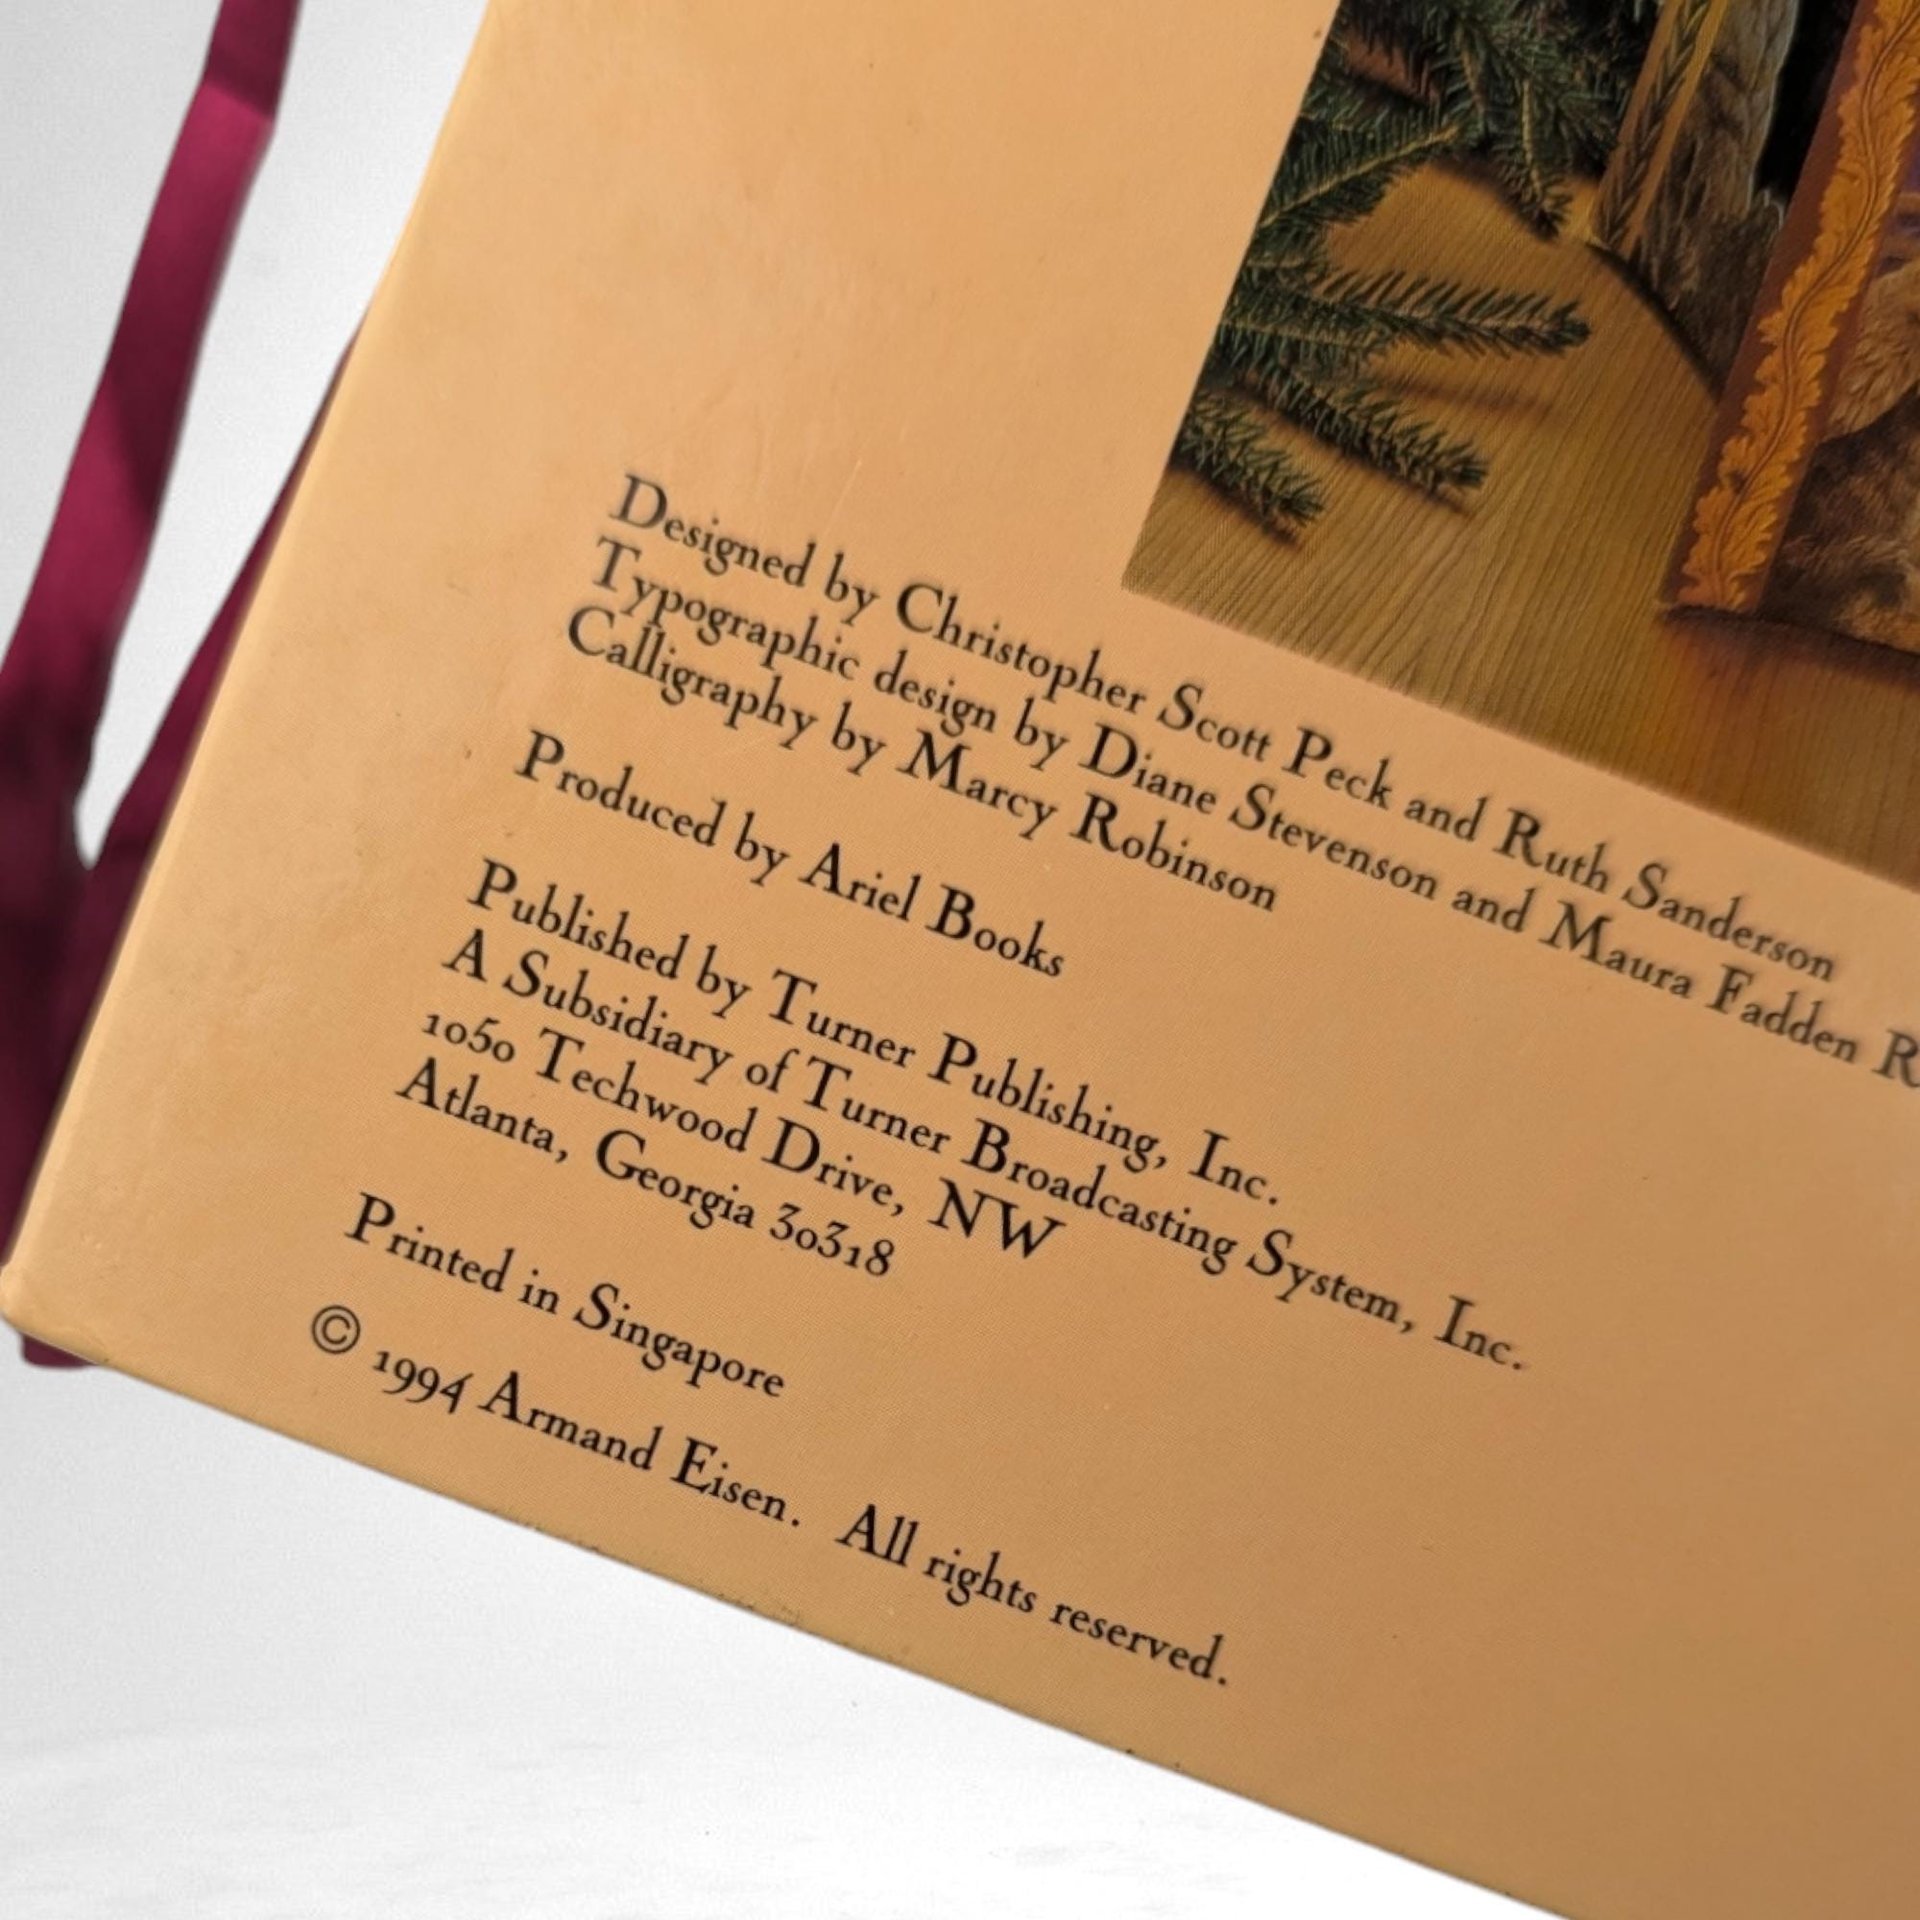 Designed by Christopher Scott Peck and Ruth Sanderson
Typographic design by Diane Stevenson and Maura Fadden
Calligraphy by Marcy Robinson
Produced by Ariel Books
Published by Turner Publishing, Inc.
A Subsidiary of Turner Broadcasting System, Inc.
1050 Techwood Drive, NW
Atlanta, Georgia 30318
Printed in Singapore
© 1994 Armand Eisen. All rights reserved.